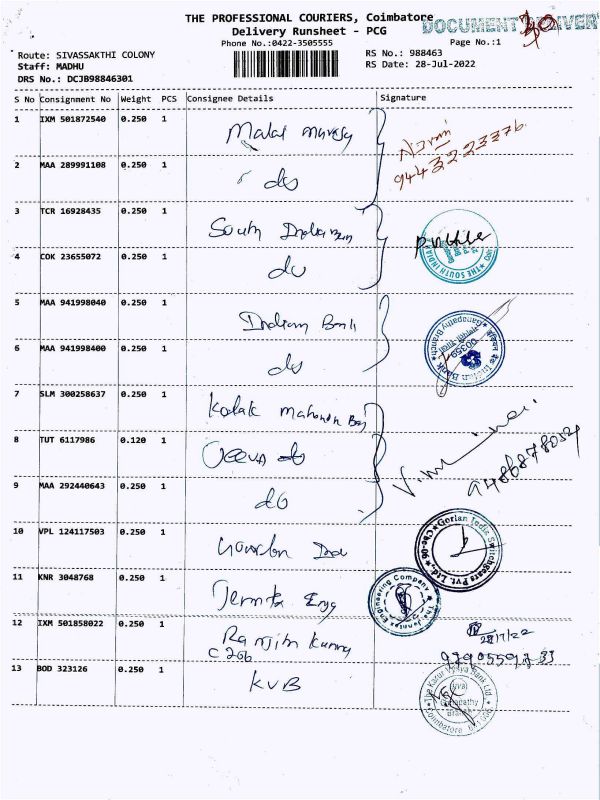 THE PROFESSIONAL COURIERS, Coimbatore
DOCUMENT DELIVERY
30
Delivery Runsheet - PCG
Phone No.:0422-3505555
Page No.:1
Route: SIVASSAKTHI COLONY
RS No.: 988463
Staff: MADHU
RS Date: 28-Jul-2022
DRS No.: DCJB98846301
S No Consignment No Weight PCS Consignee Details Signature
1 IXM 501872540 0.250 1
2 MAA 289991108 0.250 1 do
9443223376
3 TCR 16928435 0.250 1 South Indian
THE SOUTH INDIA
4 COK 23655072 0.250 1 do
5 MAA 941998040 0.250 1 Indian Bank
Ganapathy Branch
00359
Indian Bank
6 MAA 941998400 0.250 1 do
7 SLM 300258637 0.250 1 Kotak Mahendra
8 TUT 6117986 0.120 1
9 MAA 292440643 0.250 1 do
10 VPL 124117503 0.250 1
Gorian Indic Switchgears Pvt. Ltd., Cbe-06
11 KNR 3048768 0.250 1
Engineering Company
12 IXM 501858022 0.250 1 Ranjith Kumar
C 206
13 BOD 323126 0.250 1 KVB
The Karur Vysya Bank Ltd.
Ganapathy
Branch
Coimbatore